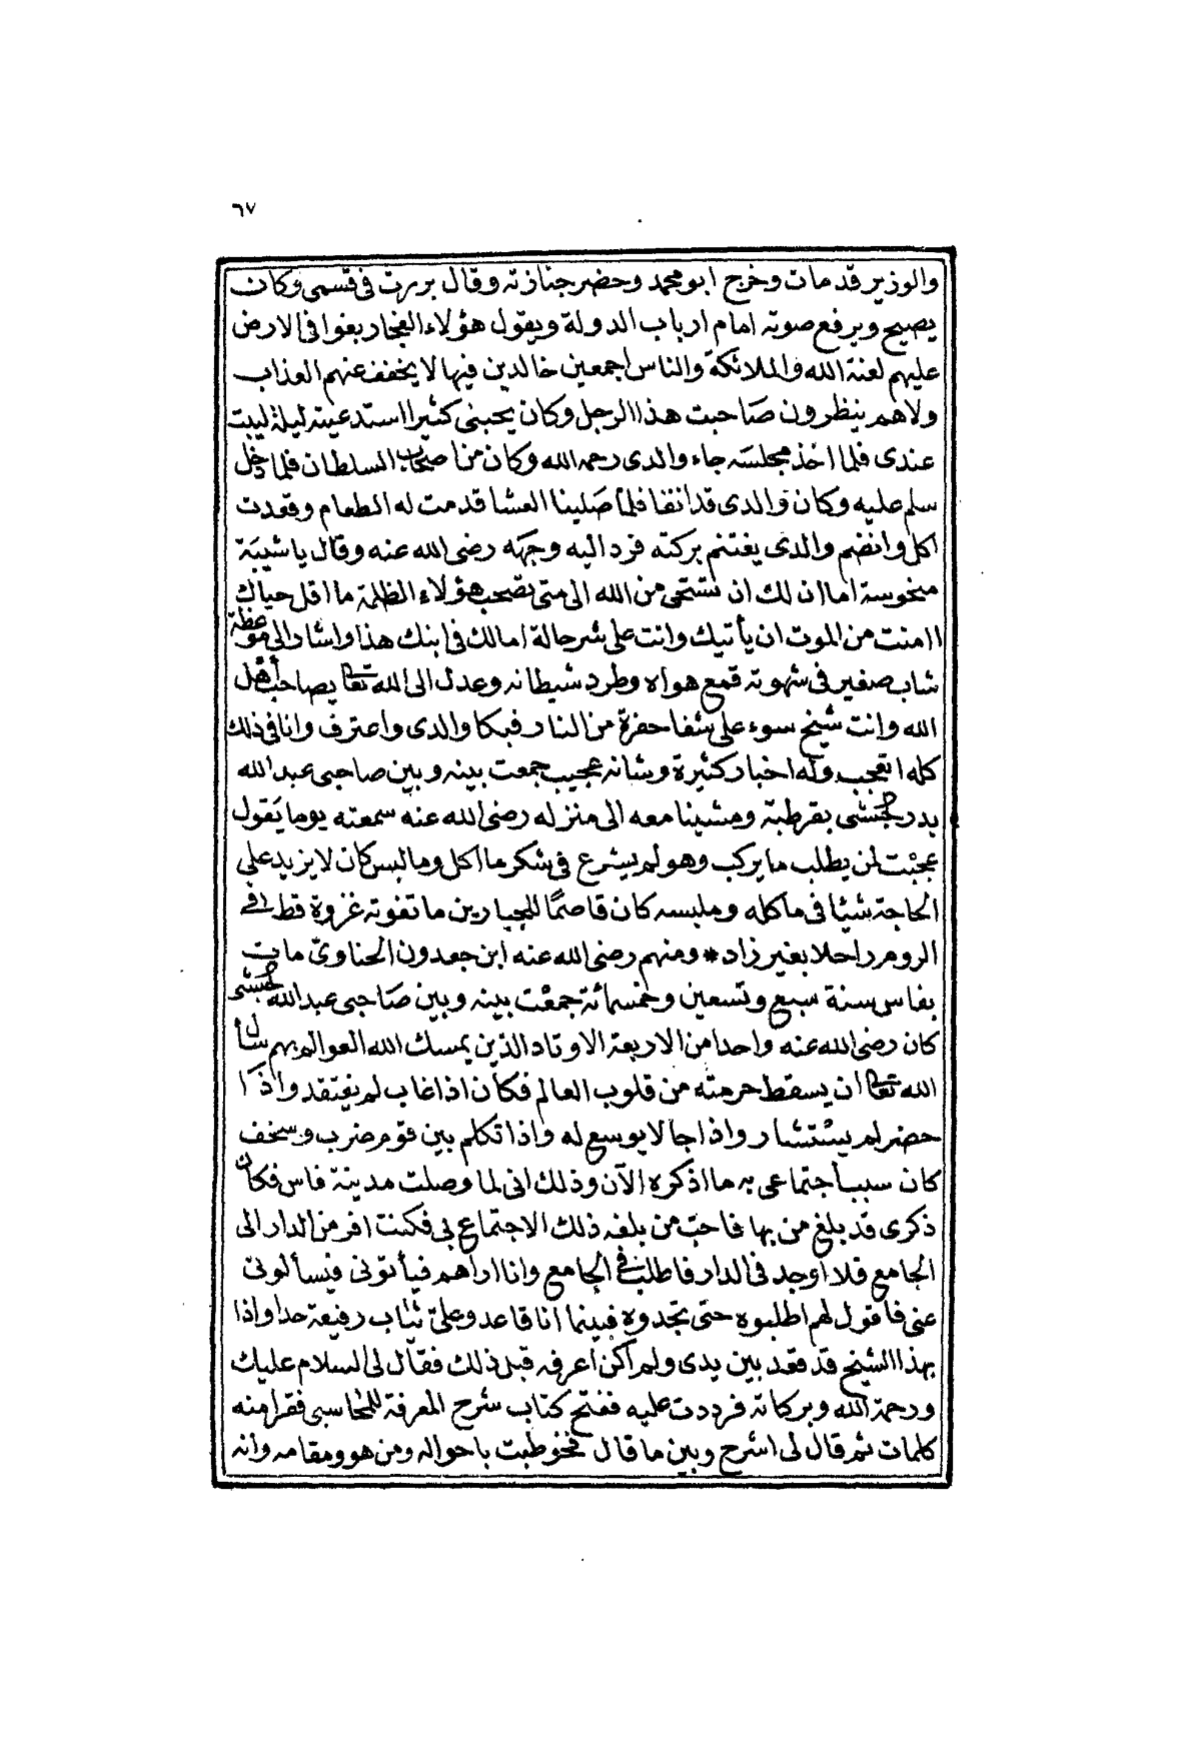 ٦٧
والوزير قد مات وخرج ابو محمد وحضر جنازته وقال بررت فى قسمى وكان
يصيح ويرفع صوته امام ارباب الدولة ويقول هؤلاء الفجار بغوا فى الارض
عليهم لعنة الله والملائكة والناس اجمعين خالدين فيها لا يخفف عنهم العذاب
ولا هم ينظرون صاحبت هذا الرجل وكان يحبنى كثيرا استدعيته ليلة ليبت
عندى فلما اخذ مجلسه جاء والدى رحمه الله وكان من اصحاب السلطان فلما دخل
سلم عليه وكان والدى قد انقا فلما صلينا العشا قدمت له الطعام وقعدت
اكل وانضم والدى يغتنم بركته فرد اليه وجهه رضى الله عنه وقال يا شيبة
منحوسة اما ان لك ان تستحى من الله الى متى تصحب هؤلاء الظلمة ما اقل حياك
اامنت من الموت ان يأتيك وانت على شر حالة امالك فى ابنك هذا واشار الى موعظة
شاب صغير فى شهوته قمع هواه وطرد شيطانه وعدل الى الله تعالى يصاحب اهل
الله وانت شيخ سوء على شفا حفرة من النار فبكا والدى واعترف وانا فى ذلك
كله اتعجب وله اخبار كثيرة وشانه عجيب جمعت بينه وبين صاحبى عبد الله
بدر حبشى بقرطبة ومشينا معه الى منزله رضى الله عنه سمعته يوما يقول
عجبت لمن يطلب ما يركب وهو لم يشرع فى شكر ما اكل وما لبس كان لا يزيد على
الحاجة شيئا فى ماكله وملبسه كان قاصما للجبارين ما تفوته غزوة قط فى
الروم راجلا بغير زاد * ومنهم رضى الله عنه ابن جعدون الحناوى مات
بفاس سنة سبع وتسعين وخمسمائة جمعت بينه وبين صاحبى عبد الله حبشى
كان رضى الله عنه واحدا من الاربعة الاوتاد الذين يمسك الله العوالم بهم سأل
الله تعالى ان يسقط حرمته من قلوب العالم فكان اذا غاب لم يفتقد واذا
حضر لم يستشار واذا جا لا يوسع له واذا تكلم بين قوم ضرب وسخف
كان سبب اجتماعى به ما اذكره الآن وذلك انى لما وصلت مدينة فاس فكان
ذكرى قد بلغ من بها فاحب من بلغه ذلك الاجتماع بى فكنت افر من الدار الى
الجامع فلا اوجد فى الدار فاطلب فى الجامع وانا اراهم فيأتونى فيسألونى
عنى فاقول لهم اطلبوه حتى تجدوه فبينما انا قاعد وعلى ثياب رفيعة جدا واذا
بهذا الشيخ قد قعد بين يدى ولم اكن اعرفه قبل ذلك فقال لى السلام عليك
ورحمة الله وبركاته فرددت عليه ففتح كتاب شرح المعرفة للمحاسبى فقرا منه
كلمات ثم قال لى اشرح وبين ما قال فخوطبت باحواله ومن هو ومقامه وانه